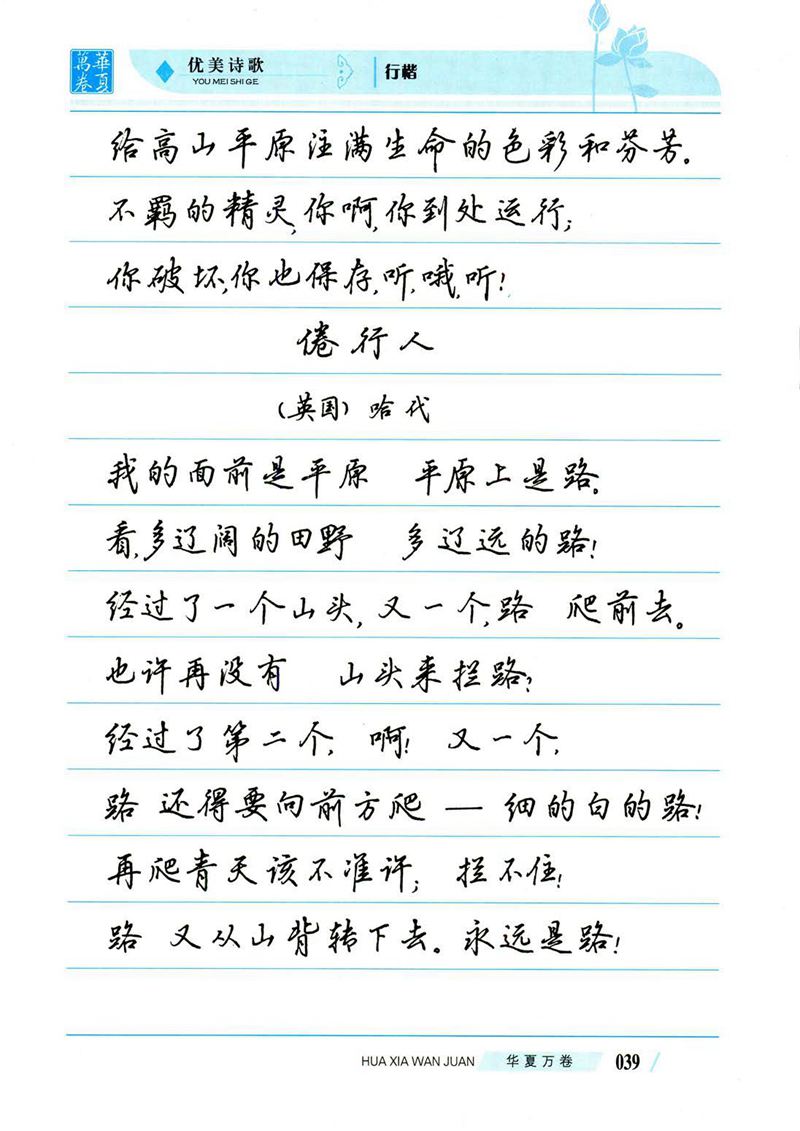 華夏萬卷
优美诗歌
YOU MEI SHI GE
行楷
给高山平原注满生命的色彩和芬芳。
不羁的精灵,你啊,你到处运行;
你破坏,你也保存,听,哦,听!
倦行人
（英国）哈代
我的面前是平原 平原上是路。
看,多辽阔的田野 多辽远的路!
经过了一个山头,又一个,路 爬前去。
也许再没有 山头来拦路?
经过了第二个, 啊! 又一个,
路 还得要向前方爬 — 细的白的路!
再爬青天该不准许; 拦不住!
路 又从山背转下去。永远是路!
HUA XIA WAN JUAN 华夏万卷 039